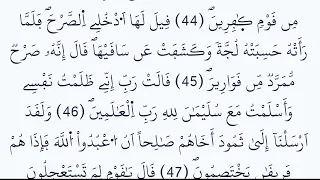 مِن قَوْمٍ كٰ۪فِرِينَۖ (44) قِيلَ لَهَا اَ۟دْخُلِے اِ۬لصَّرْحَۖ فَلَمَّا
رَأَتْهُ حَسِبَتْهُ لُجَّةٗ وَكَشَفَتْ عَن سَاقَيْهَاۖ قَالَ إِنَّهُۥ صَرْحٞ
مُّمَرَّدٞ مِّن قَوَارِيرَۖ (45) قَالَتْ رَبِّ إِنِّے ظَلَمْتُ نَفْسِے
وَأَسْلَمْتُ مَعَ سُلَيْمَٰنَ لِلهِ رَبِّ اِ۬لْعَٰلَمِينَۖ (46) وَلَقَدَ
اَرْسَلْنَآ إِلَىٰ ثَمُودَ أَخَاهُمْ صَٰلِحاً اَنُ ا۟عْبُدُواْ اُ۬للَّهَ فَإِذَا هُمْ
فَرِيقَٰنِ يَخْتَصِمُونَۖ (47) قَالَ يَٰقَوْمِ لِمَ تَسْتَعْجِلُونَ